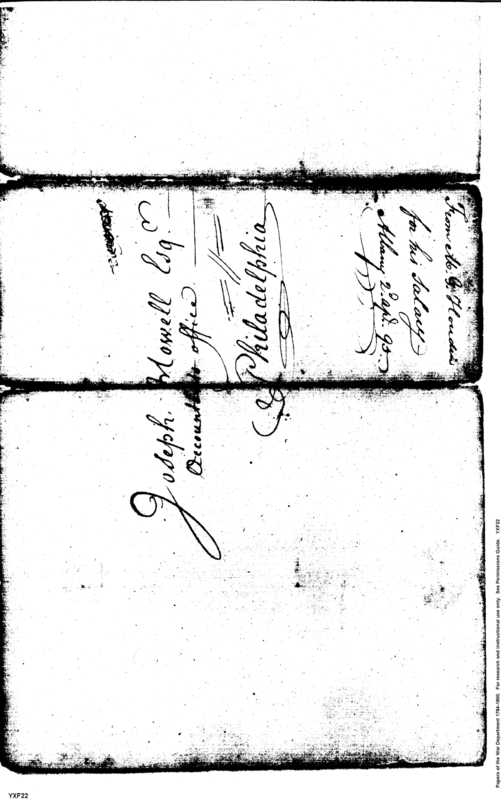 Joseph Howell Esqr
Accountants office
Philadelphia
From M. G. Houdin
for his Salary
Albany 2d apr. 93.
Papers of the War Department 1784-1800. For research and instructional use only. See Permissions Guide. YXF22
YXF22